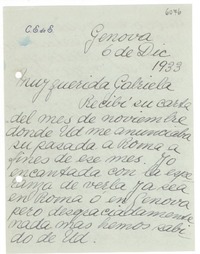 6046
C.E. de E.
Genova
6 de Dic
1933
Muy querida Gabriela
Recibí su carta
del mes de noviembre
donde Ud me anunciaba
su pasada a Roma a
fines de ese mes. Yo
encantada con la espe
ranza de verla ya sea
en Roma o en Genova
pero desgraciadamente
nada mas hemos sabi
do de Ud.